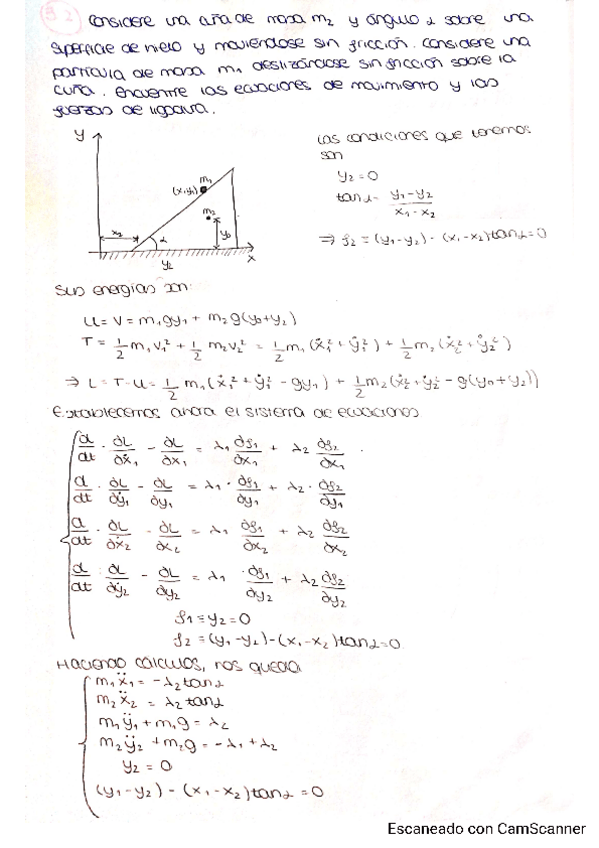 Considere una cuña de masa m₂ y ángulo α sobre una
superficie de hielo y moviéndose sin fricción. Considere una
partícula de masa m₁ deslizándose sin fricción sobre la
cuña. Encuentre las ecuaciones de movimiento y las
fuerzas de ligadura.
y
m₁
(x₁,y₁)
m₂
x₂
α
y₀
y₂
x
Las condiciones que tenemos
son
y₂=0
tanα = (y₁-y₂)/(x₁-x₂)
⇒ f₂ = (y₁-y₂) - (x₁-x₂)tanα=0
Sus energías son:
U = V = m₁gy₁ + m₂g(y₀+y₂)
T = 1/2 m₁v₁² + 1/2 m₂v₂² = 1/2 m₁(ẋ₁²+ẏ₁²) + 1/2 m₂(ẋ₂²+ẏ₂²)
⇒ L = T-U = 1/2 m₁(ẋ₁²+ẏ₁² - gy₁) + 1/2 m₂(ẋ₂²+ẏ₂² - g(y₀+y₂))
Establecemos ahora el sistema de ecuaciones
d/dt · ∂L/∂ẋ₁ - ∂L/∂x₁ = λ₁ ∂f₁/∂x₁ + λ₂ ∂f₂/∂x₁
d/dt · ∂L/∂ẏ₁ - ∂L/∂y₁ = λ₁ · ∂f₁/∂y₁ + λ₂ · ∂f₂/∂y₁
d/dt · ∂L/∂ẋ₂ - ∂L/∂x₂ = λ₁ ∂f₁/∂x₂ + λ₂ ∂f₂/∂x₂
d/dt · ∂L/∂ẏ₂ - ∂L/∂y₂ = λ₁ · ∂f₁/∂y₂ + λ₂ ∂f₂/∂y₂
f₁ = y₂ = 0
f₂ = (y₁-y₂) - (x₁-x₂)tanα=0
Haciendo cálculos, nos queda
m₁ẍ₁ = -λ₂tanα
m₂ẍ₂ = λ₂tanα
m₁ÿ₁ + m₁g = λ₂
m₂ÿ₂ + m₂g = -λ₁+λ₂
y₂ = 0
(y₁-y₂) - (x₁-x₂)tanα = 0
Escaneado con CamScanner